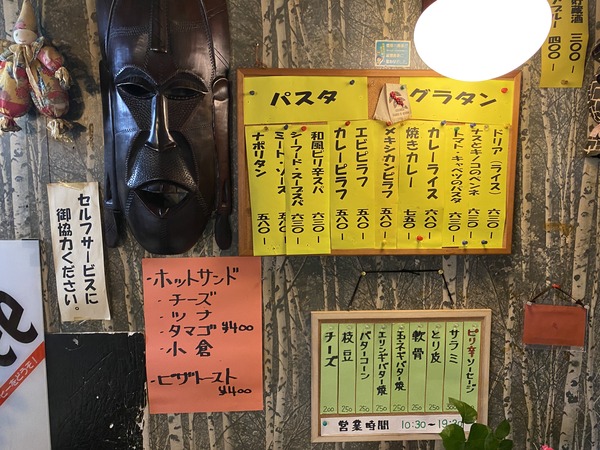 貯蔵酒 三〇〇ー
四〇〇ー
パスタ
グラタン
ドリア(ライス) 六三〇ー
ナスとキノコのペンネ 六三〇ー
トマト・キャベツのパスタ 六三〇ー
カレーライス 六八〇ー
焼きカレー 七五〇ー
メキシカンピラフ 五八〇ー
エビピラフ 五八〇ー
カレーピラフ 五八〇ー
和風ピリ辛スパ 六三〇ー
シーフード・スープスパ 六三〇ー
ミート・ソース 五八〇ー
ナポリタン 五八〇ー
セルフサービスに
御協力ください。
・ホットサンド
・チーズ
・ツナ
・タマゴ ¥400
・小倉
・ピザトースト
¥400
ピリ辛ソーセージ
サラミ
とり皮
軟骨 250
玉ネギバター焼 250
エリンギバター焼 250
バターコーン 250
枝豆 250
チーズ 200
営業時間 10:30〜19:30
ーをどうぞ!